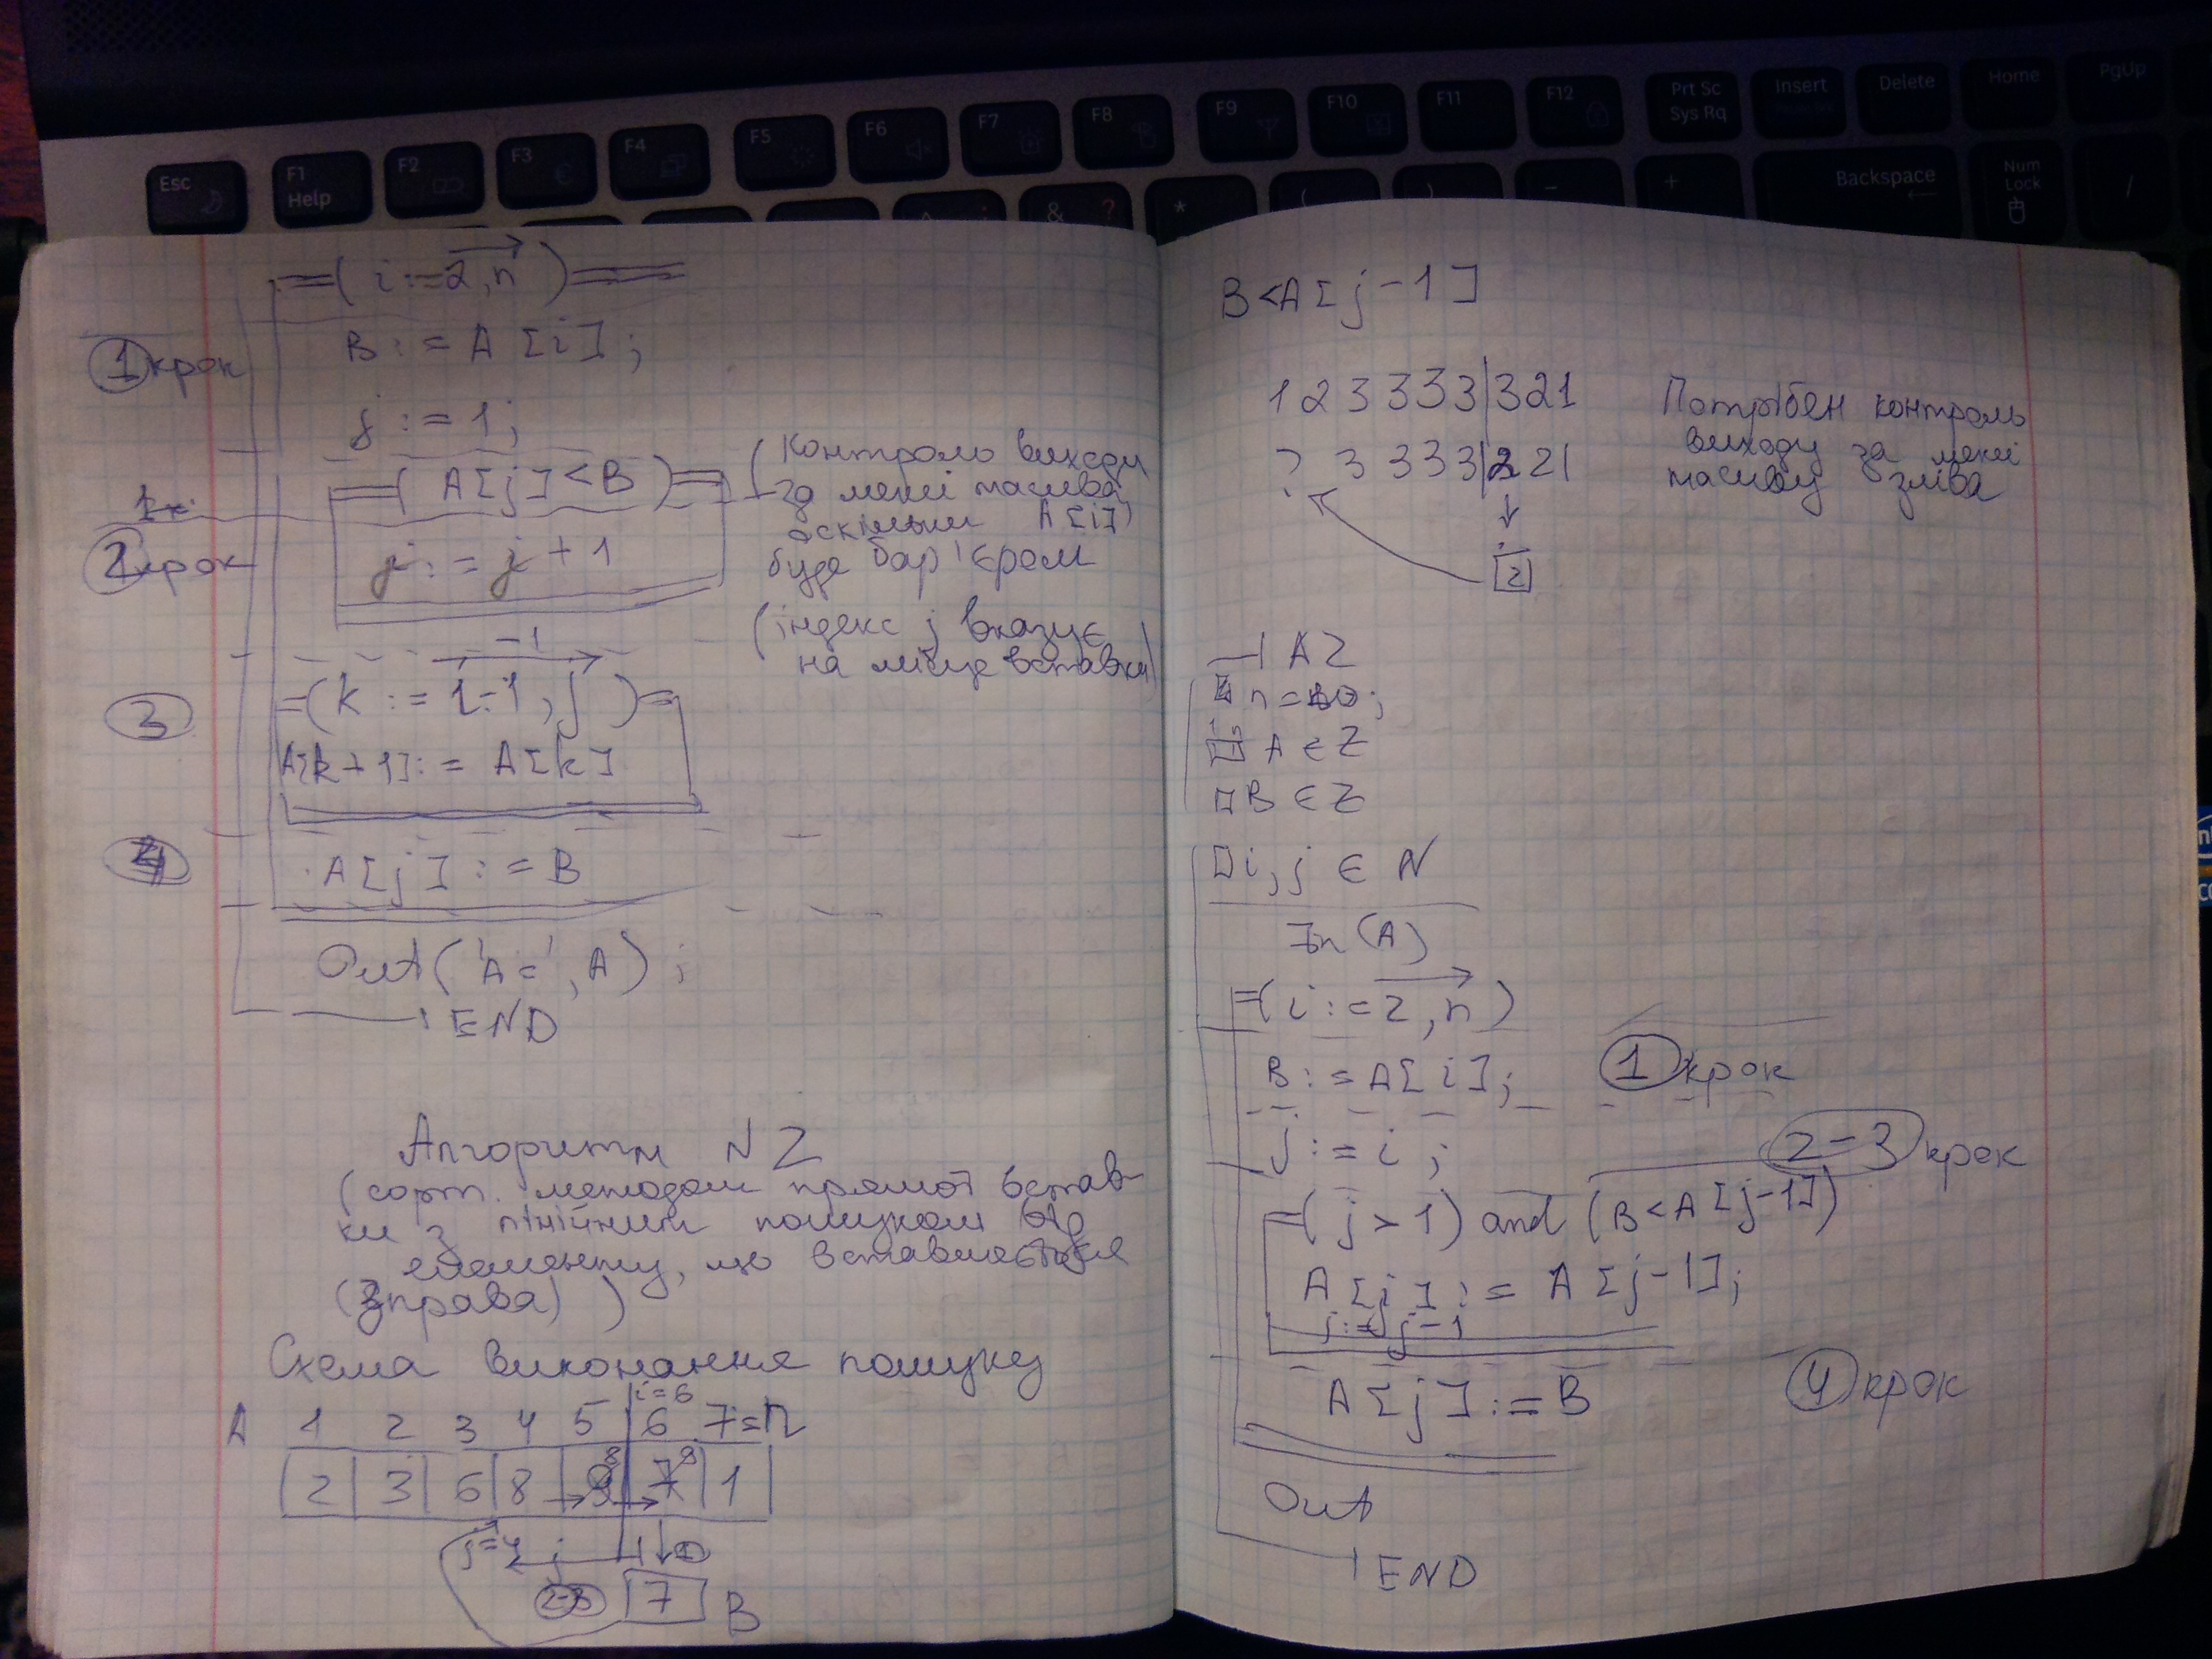 Esc
F1
Help
F2
F3
F4
F5
F6
F7
F8
F9
F10
F11
F12
Prt Sc
Sys Rq
Insert
Delete
Home
PgUp
&
?
*
(
)
-
+
Backspace
Num
Lock
/
( i := 2, n )
1 крок
B := A [i] ;
j := 1;
( A[j] < B )
(Контроль виходу
за межі масива
оскільки A[i]
2 крок
j := j + 1
буде бар'єром
(індекс j вказує
на місце вставки)
-1
3
( k := i-1, j )
A[k+1] := A[k]
4
A[j] := B
Out('A=', A) ;
END
Алгоритм N 2
(сорт. методом прямої встав-
ки з лінійним пошуком від
елементу, що вставляється
(справа) )
Схема виконання пошуку
i=6
A 1 2 3 4 5 6 7=n
2 3 6 8 9 8 7 9 1
j=4 j
2-3 7 B
B < A[j-1]
1 2 3 3 3 3 | 3 2 1
? 3 3 3 3 | 2 2 1
2
Потрібен контроль
виходу за межі
масиву зліва
A2
n = 10;
A ∈ Z
B ∈ Z
i, j ∈ N
In (A)
( i := 2, n )
B := A[i]; 1 крок
j := i ; 2-3 крок
( j > 1) and (B < A[j-1])
A[j] := A[j-1];
j := j-1
A[j] := B 4 крок
Out
END